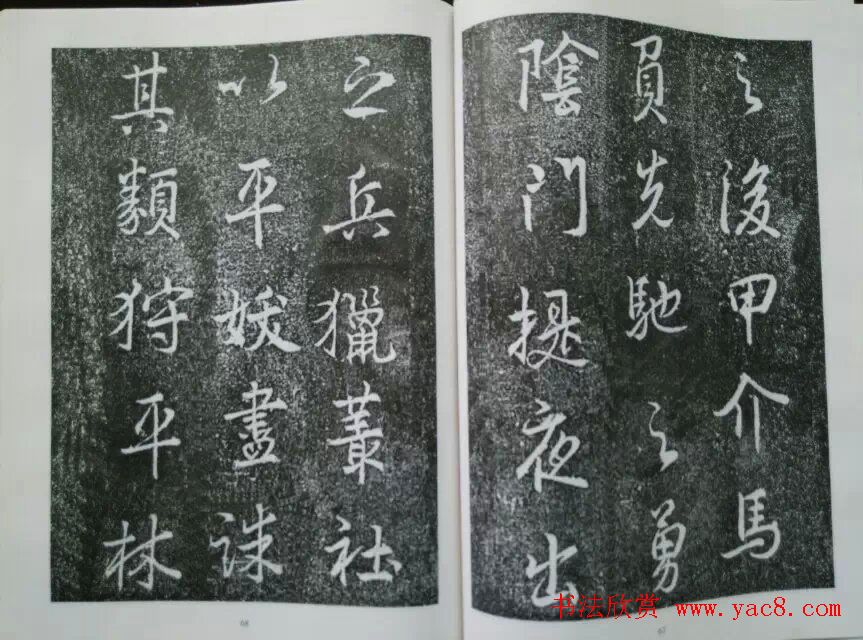 之後甲介馬
負先馳之勇
陰門提夜出
之兵獵叢社
以平妖盡誅
其類狩平林
68
67
书法欣赏 www.yac8.com